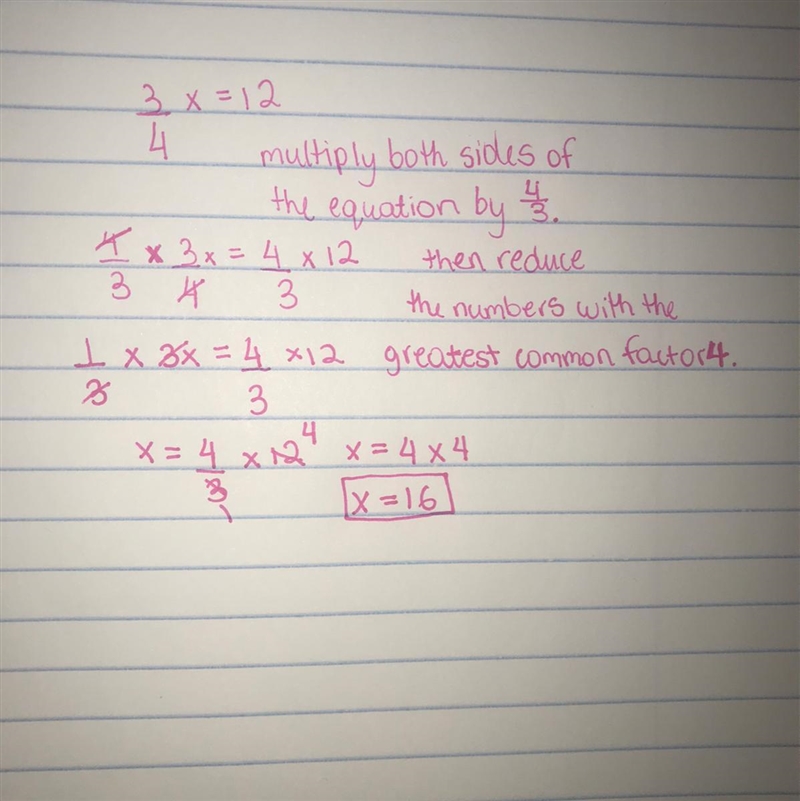 3/4 x = 12
multiply both sides of
the equation by 4/3.
4/3 × 3/4 x = 4/3 × 12 then reduce
the numbers with the
1/3 × 3x = 4/3 × 12 greatest common factor 4.
x = 4/3 × 12 4 x = 4 × 4
1 x = 16